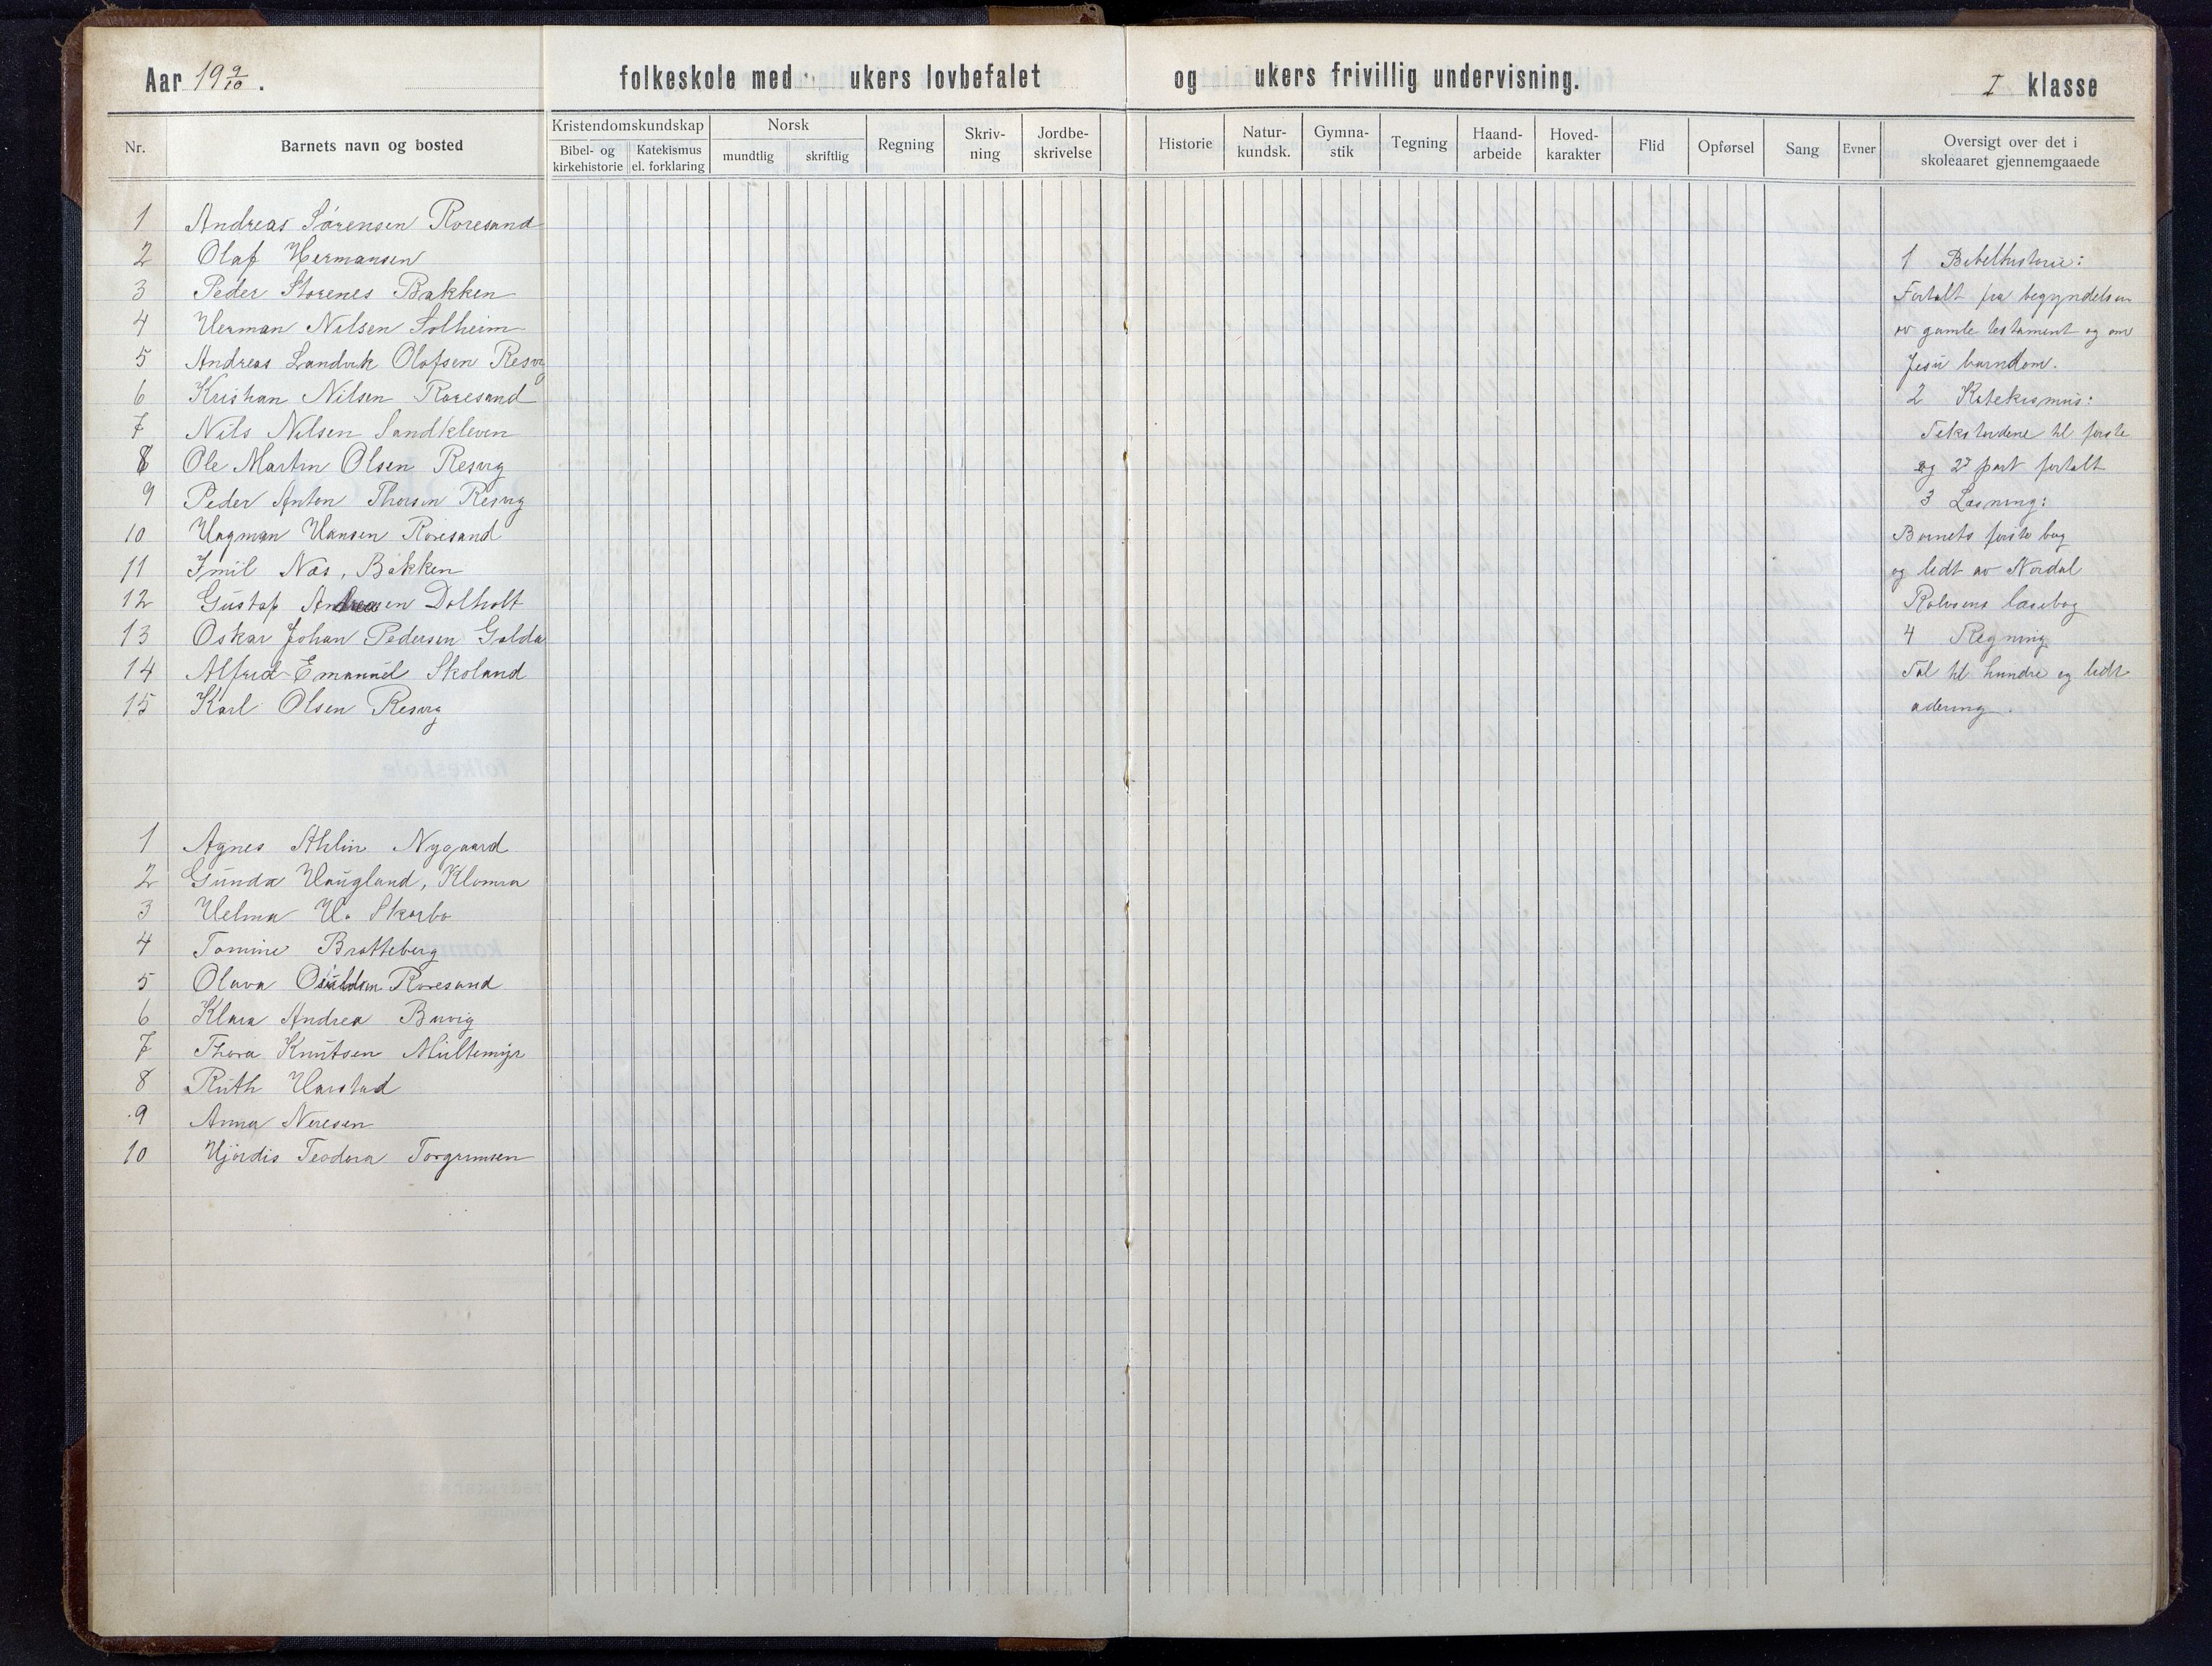 Aar 19 9/10 .
folkeskole med ukers lovbefalet og ukers frivillig undervisning.
I klasse
Nr.
Barnets navn og bosted
Kristendomskundskap
Bibel- og kirkehistorie
Katekismus el. forklaring
Norsk
mundtlig
skriftlig
Regning
Skriv-
ning
Jordbe-
skrivelse
Historie
Natur-
kundsk.
Gymna-
stik
Tegning
Haand-
arbeide
Hoved-
karakter
Flid
Opførsel
Sang
Evner
Oversigt over det i
skoleaaret gjennemgaaede
1 Andreas Sørensen Roresand
2 Olaf Hermansen
3 Peder Storenes Bakken
4 Herman Nilsen Solheim
5 Andreas Landvik Olafsen Resvig
6 Kristian Nilsen Roresand
7 Nils Nilsen Sandkleven
8 Ole Martin Olsen Resvig
9 Peder Anton Thorsen Resvig
10 Hagman Hansen Roresand
11 Emil Næs, Bakken
12 Gustaf Andreasen Dolholt
13 Oskar Johan Pedersen Galda
14 Alfred Emanuel Skoland
15 Karl Olsen Resvig
1 Agnes Ahlin Nygaard
2 Gunda Haugland, Klomra
3 Helma H. Skarbo
4 Tomine Bratteberg
5 Olava Osuldsen Roresand
6 Klara Andrea Buvig
7 Thora Knutsen Multemyr
8 Ruth Harstad
9 Anna Neresen
10 Hjørdis Teodora Torgrimsen
1 Bibelhistorie:
Fortalt fra begyndelsen
av gamle testament og om
Jesu barndom.
2 Katekismus:
Tekstordene til første
og 2⁠n part fortalt
3 Læsning:
Barnets første bog
og lidt av Nordal
Rolvsens læsebog
4 Regning
Tal til hundre og lidt
adering.